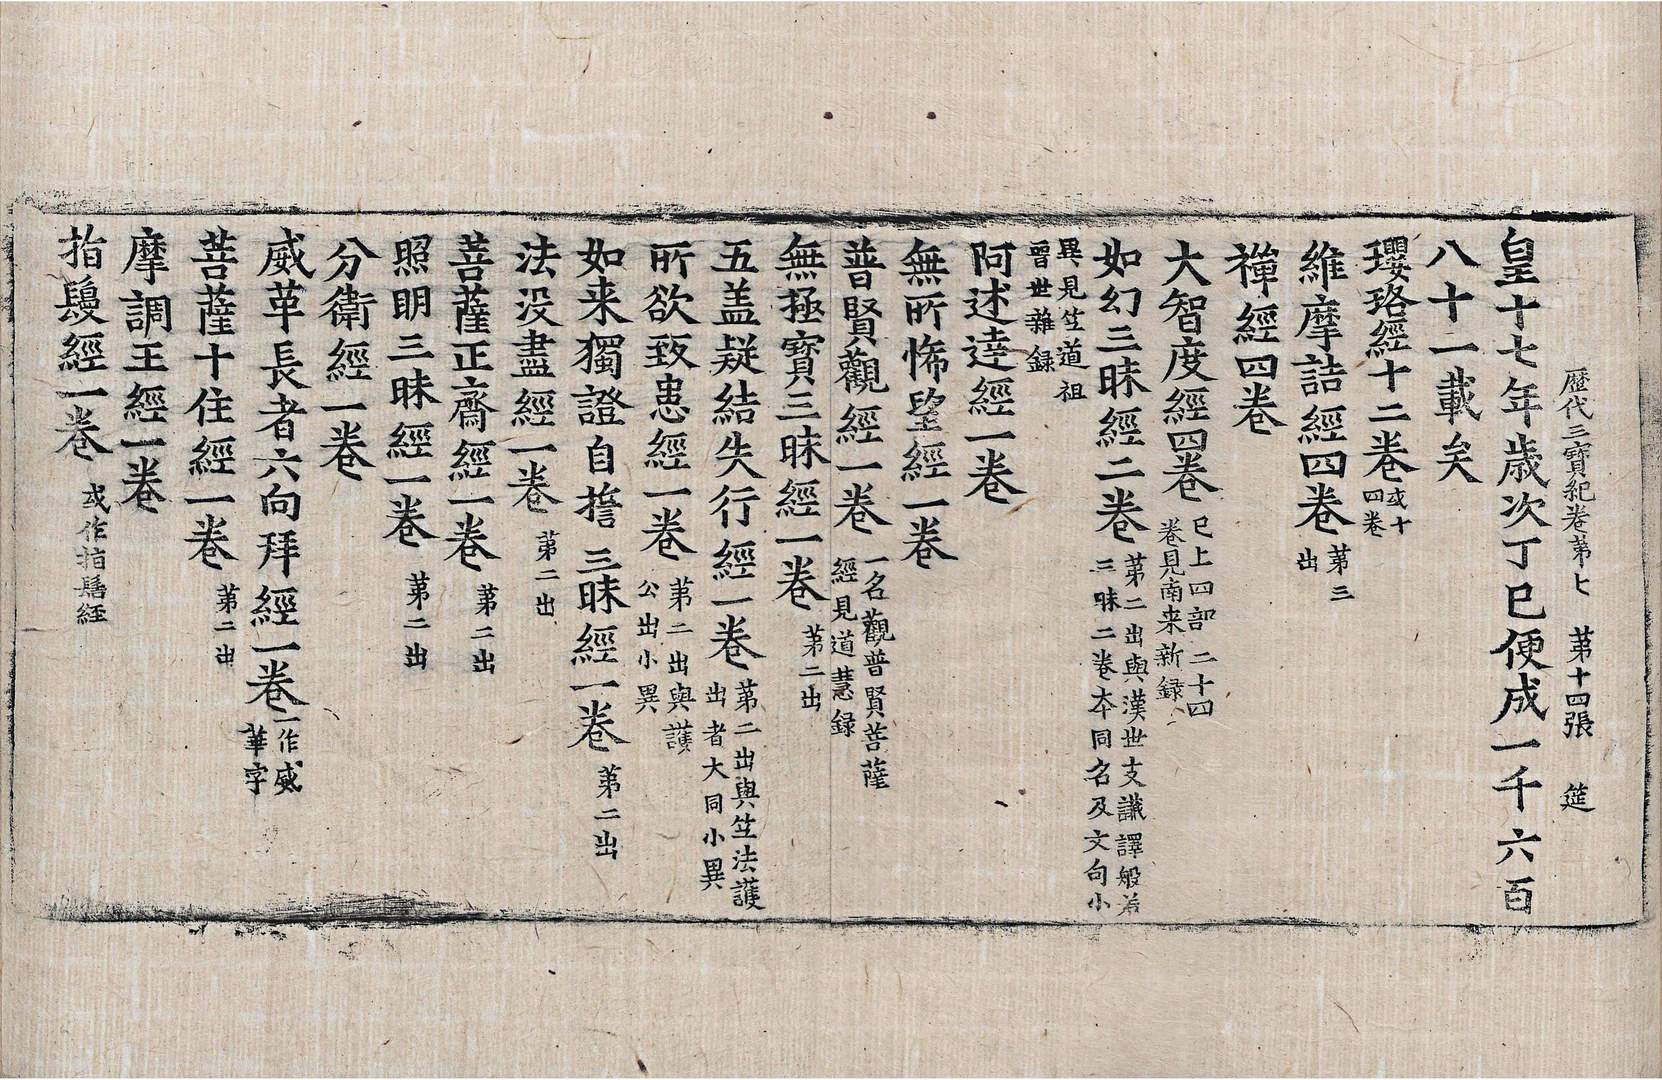 歷代三寶紀卷第七 第十四張 筵
皇十七年歲次丁巳便成一千六百
八十一載矣
瓔珞經十二卷或十四卷
維摩詰經四卷第三出
禪經四卷
大智度經四卷已上四部二十四卷見南来新録
如幻三昧經二卷第二出與漢世支讖譯般若三昧二卷本同名及文句小
異見竺道祖晉世雜録
阿述達經一卷
無所悕望經一卷
普賢觀經一卷一名觀普賢菩薩經見道慧録
無極寳三昧經一卷第二出
五盖疑結失行經一卷第二出與竺法護出者大同小異
所欲致患經一卷第二出與護公出小異
如来獨證自誓三昧經一卷第二出
法没盡經一卷第二出
菩薩正齋經一卷第二出
照明三昧經一卷第二出
分衛經一卷
威革長者六向拜經一卷一作威華字
菩薩十住經一卷第二出
摩調王經一卷
指鬘經一卷或作指髻經